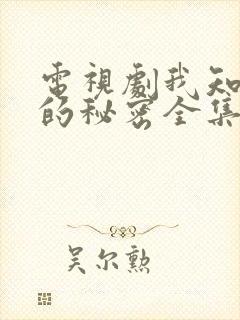 電視劇我知
的秘密全集
吴尔勲